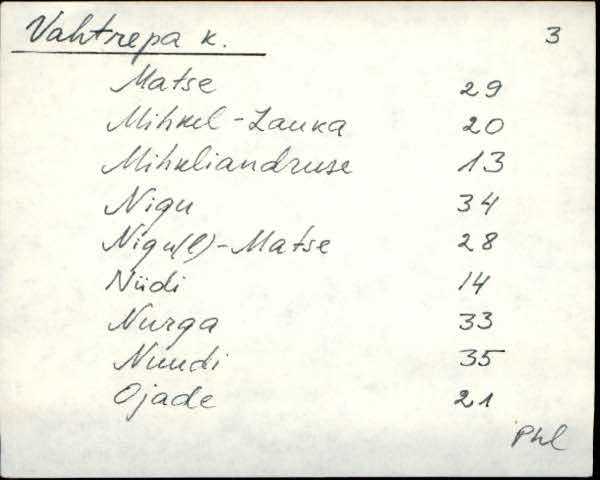 Vahtrepa k. 3
Matse 29
Mihkel-Lauka 20
Mihkliandruse 13
Nigu 34
Nigu(l)-Matse 28
Nüdi 14
Nurga 33
Nuudi 35
Ojade 21
Phl